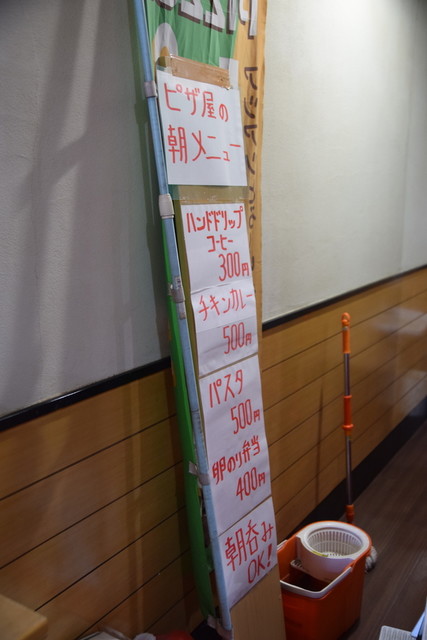 ピザ屋の
朝メニュー
ハンドドリップ
コーヒー
300円
チキンカレー
500円
パスタ
500円
卵のり弁当
400円
朝呑み
OK!